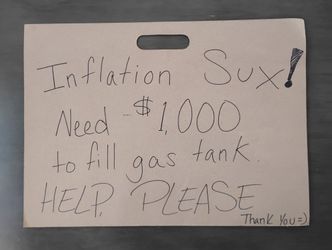 Inflation Sux!
Need $1,000
to fill gas tank.
HELP, PLEASE
Thank You =)